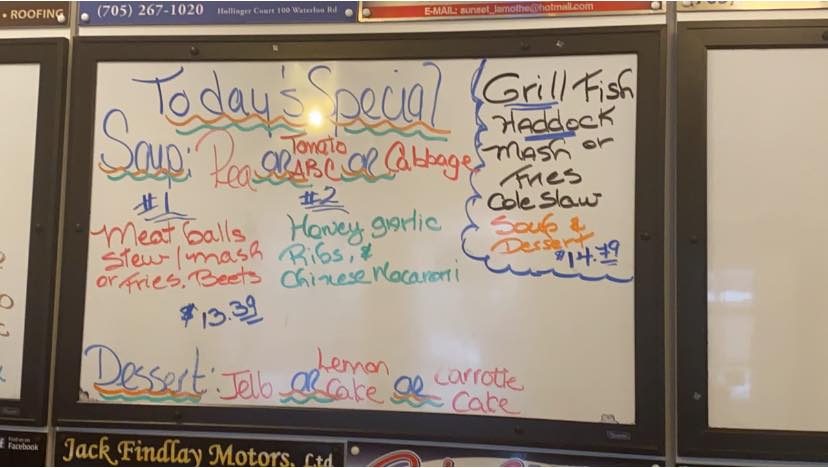 • ROOFING
(705) 267-1020 Hollinger Court 100 Waterloo Rd
E-MAIL: sunset_lamothe@hotmail.com
Today's Special
Soup: Pea OR Tomato ABC OR Cabbage
#1
Meat balls
Stew / mash
or Fries. Beets
#2
Honey garlic
Ribs, &
Chinese Macaroni
$13.39
Grill Fish
HADDOCK
MASH or
Fries
Cole Slaw
Soup &
Dessert
$14.79
Dessert: Jello OR Lemon Cake OR Carrotte Cake
Find us on
Facebook
Jack Findlay Motors, Ltd